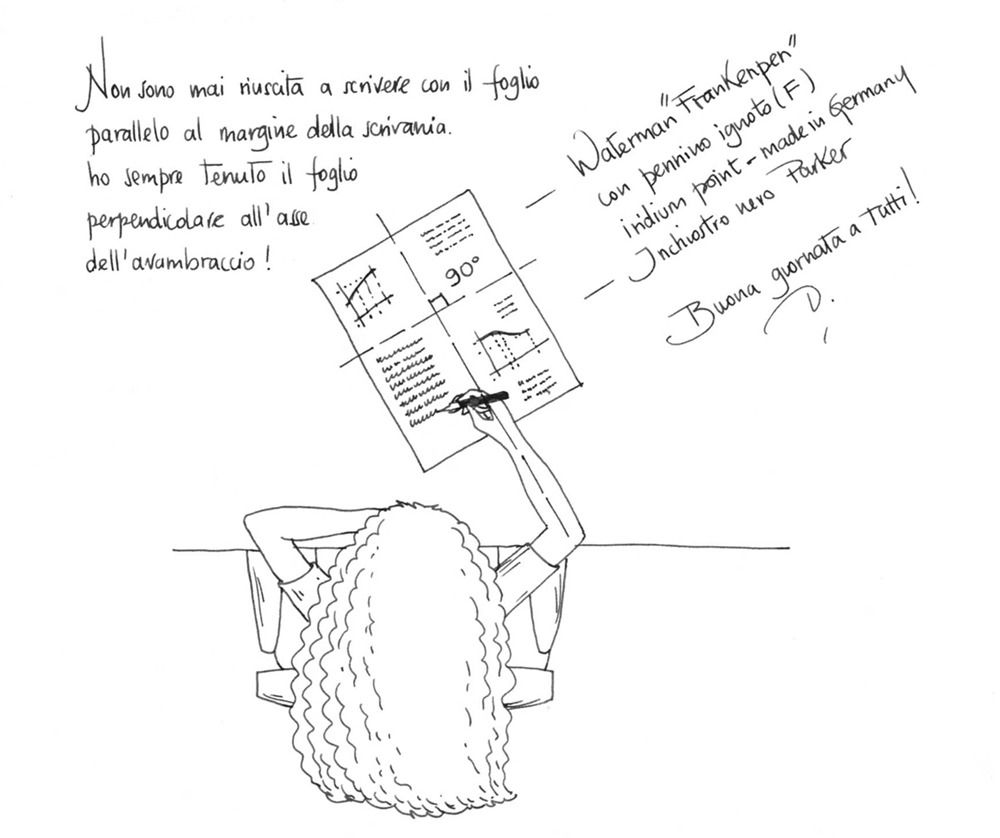 Non sono mai riuscita a scrivere con il foglio
parallelo al margine della scrivania.
ho sempre tenuto il foglio
perpendicolare all'asse
dell'avambraccio!
Waterman "FranKenpen"
con pennino ignoto (F)
iridium point - made in Germany
Inchiostro nero Parker
Buona giornata a tutti!
D.
90°